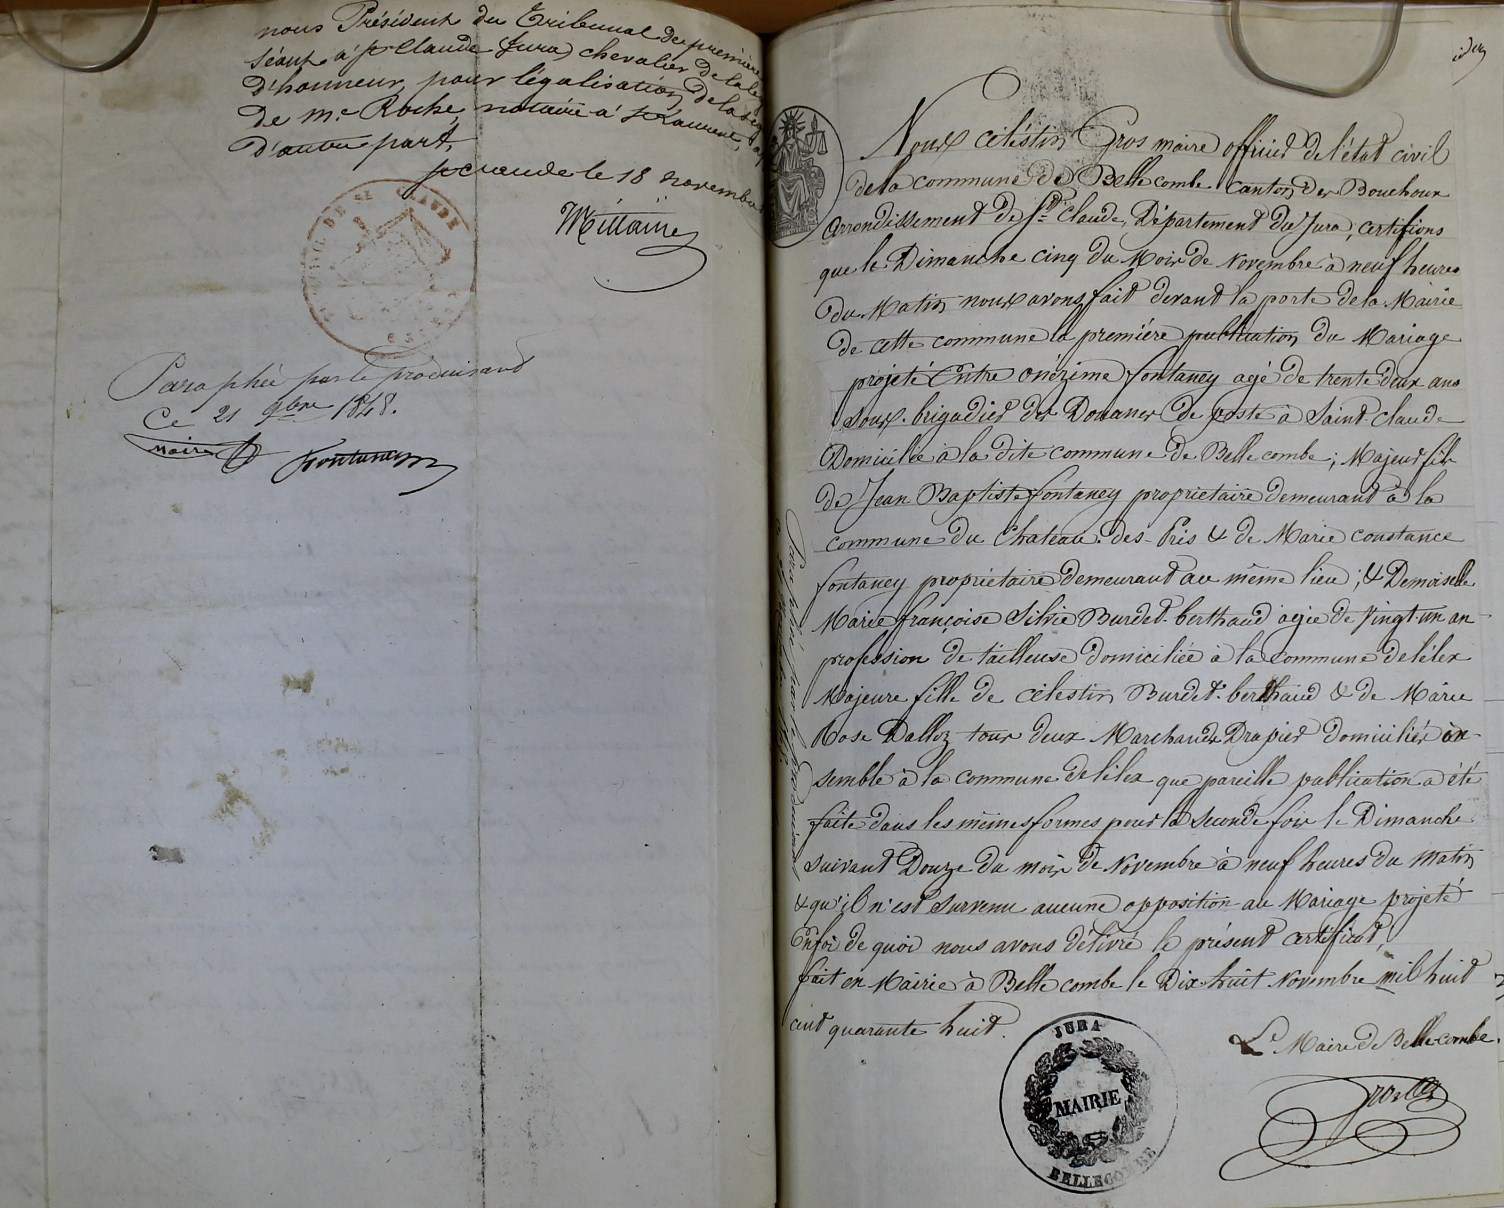 nous Président du Tribunal de première
séant à St Claude (Jura) chevalier de la
d'honneur, pour légalisation de la
de Me Roche, notaire à St Laurent,
d'autre part,
St Claude le 18 novembre
Millaine
TRIBUNAL DE ST CLAUDE
Paraphée par le produisant
Ce 21 9bre 1848.
maire Fontaney
Nous célestin Gros maire officier de l'état civil
de la commune de Bellecombe canton des Bouchoux
Arrondissement de St Claude, Département du Jura, certifions
que le Dimanche cinq du Mois de Novembre à neuf heures
du Matin nous avons fait devant la porte de la Mairie
de cette commune la première publication du Mariage
projeté Entre Onézime fontaney agé de trente deux ans
Sous-brigadier des Douanes de poste à Saint Claude
Domicilié à la dite commune de Bellecombe; Majeur fils
de Jean Baptiste fontaney propriétaire demeurant à la
commune du Chateau-des-Prés & de Marie constance
fontaney propriétaire demeurant au même lieu; & Demoiselle
Marie françoise Silvie Burdet-berthaud agée de Vingt-un an
profession de tailleuse domiciliée à la commune de lélex
Majeure fille de célestin Burdet-berthaud & de Marie
Rose Dalloz tous deux Marchands Drapier domiciliés en-
semble à la commune de lélex que pareille publication a été
faite dans les mêmes formes pour la seconde fois le Dimanche
suivant Douze du mois de Novembre à neuf heures du Matin
& qu'il n'est survenu aucune opposition au Mariage projeté
En foi de quoi nous avons délivré le présent certificat,
fait en Mairie à Bellecombe le Dix-huit Novembre mil huit
cent quarante huit.
Le Maire de Bellecombe.
Gros
JURA
MAIRIE
BELLECOMBE
Paraphée par le produisant